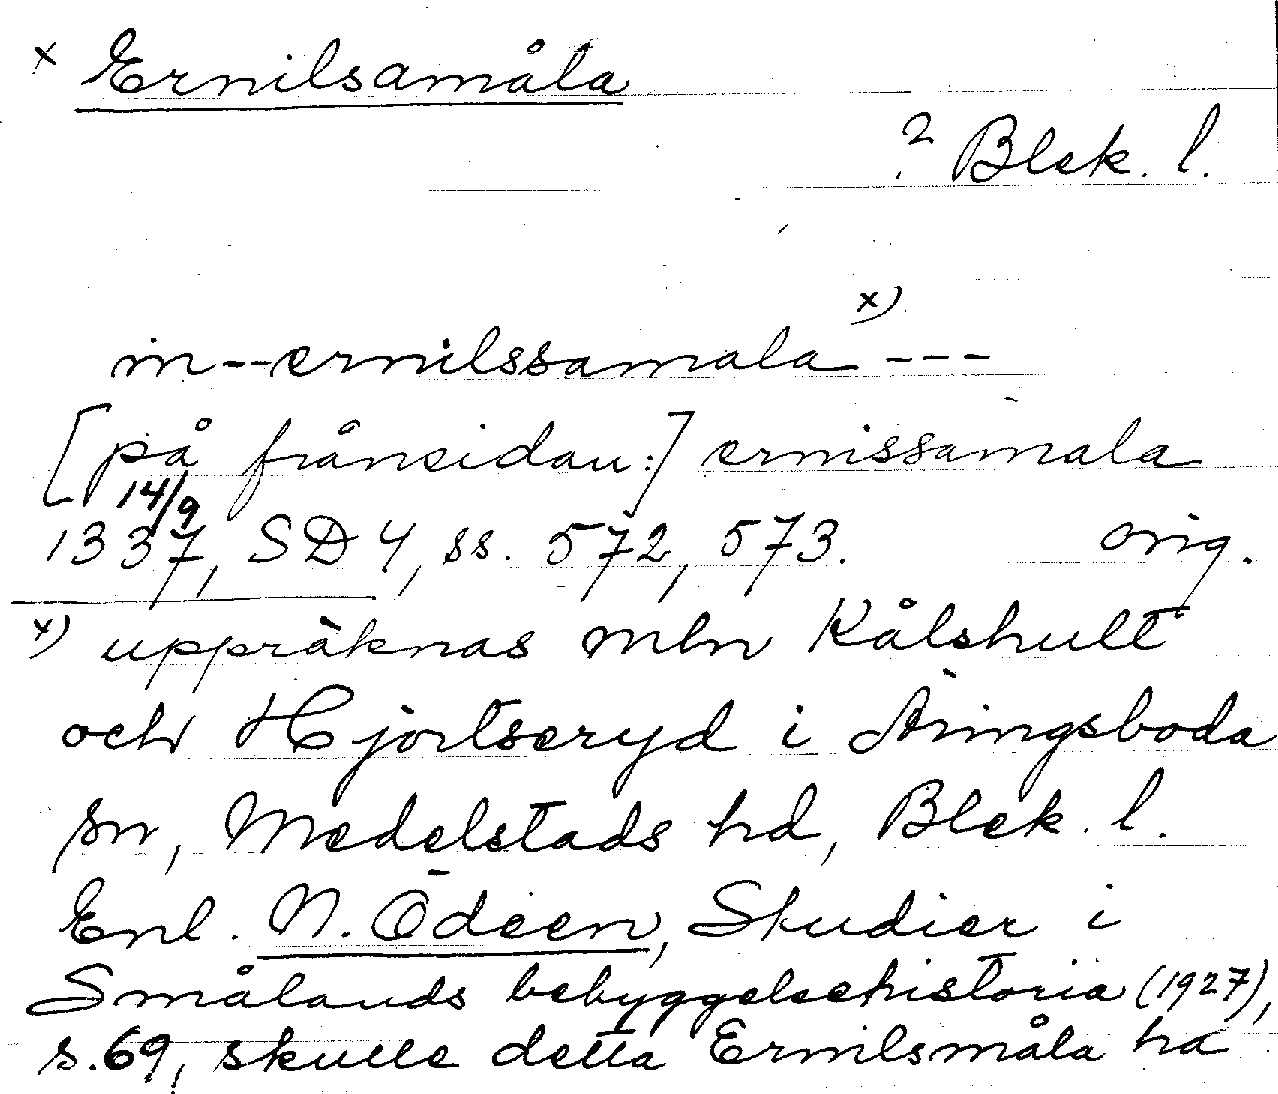 x Ernilsamåla
? Blek. l.
in -- ernilssamala x) ---
[på frånsidan:] ernissamala
14/9
1337, SD 4, ss. 572, 573. orig.
x) uppräknas mln Kålshult
och Hjortseryd i Äringsboda
sn, Medelstads hd, Blek. l.
Enl. N. Ödeen, Studier i
Smålands bebyggelsehistoria (1927),
s. 69, skulle detta Ernilsmåla ha